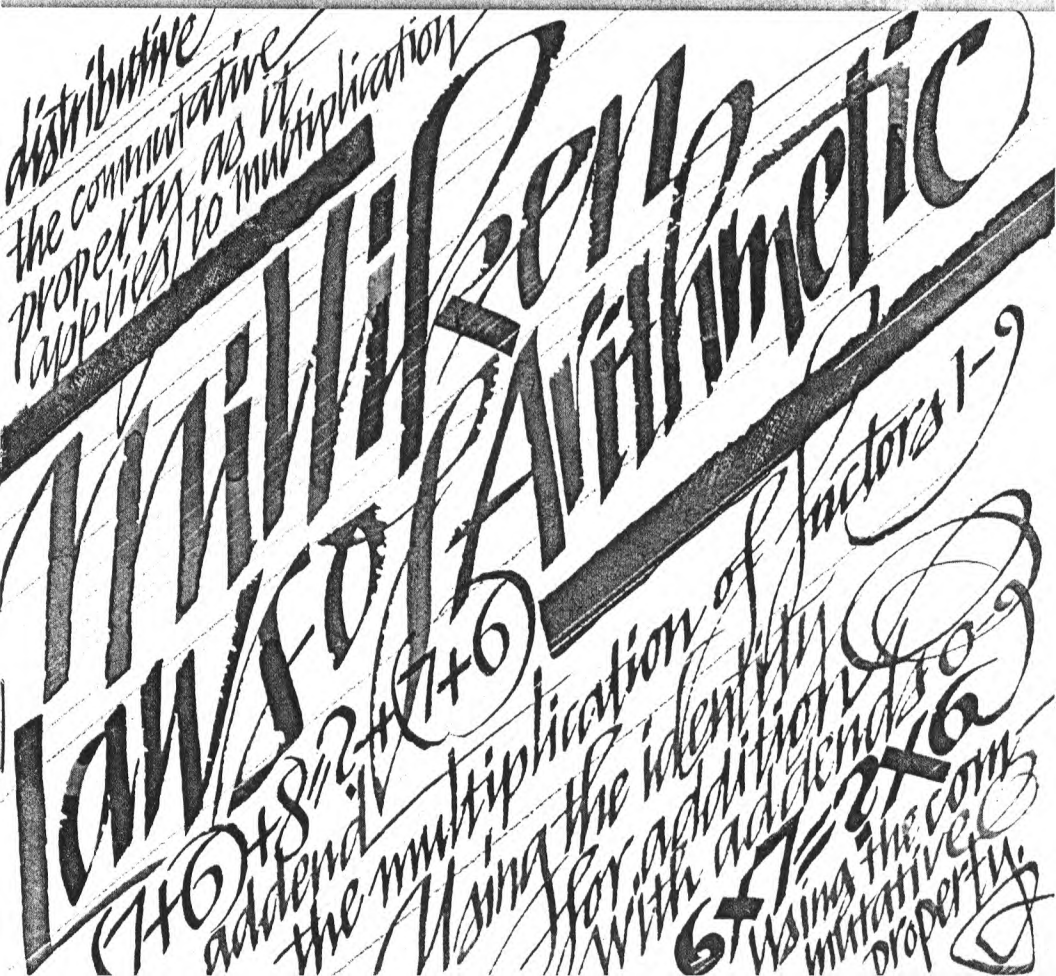 distributive
the commutative
property as it
applies to multiplication
Milliken
laws of Arithmetic
(7+6)+8=?+(7+6)
addend
the multiplication of factors 1-9
Using the identity
for addition
with addends 0-9
6+7=?+6
using the com
mutative
property.